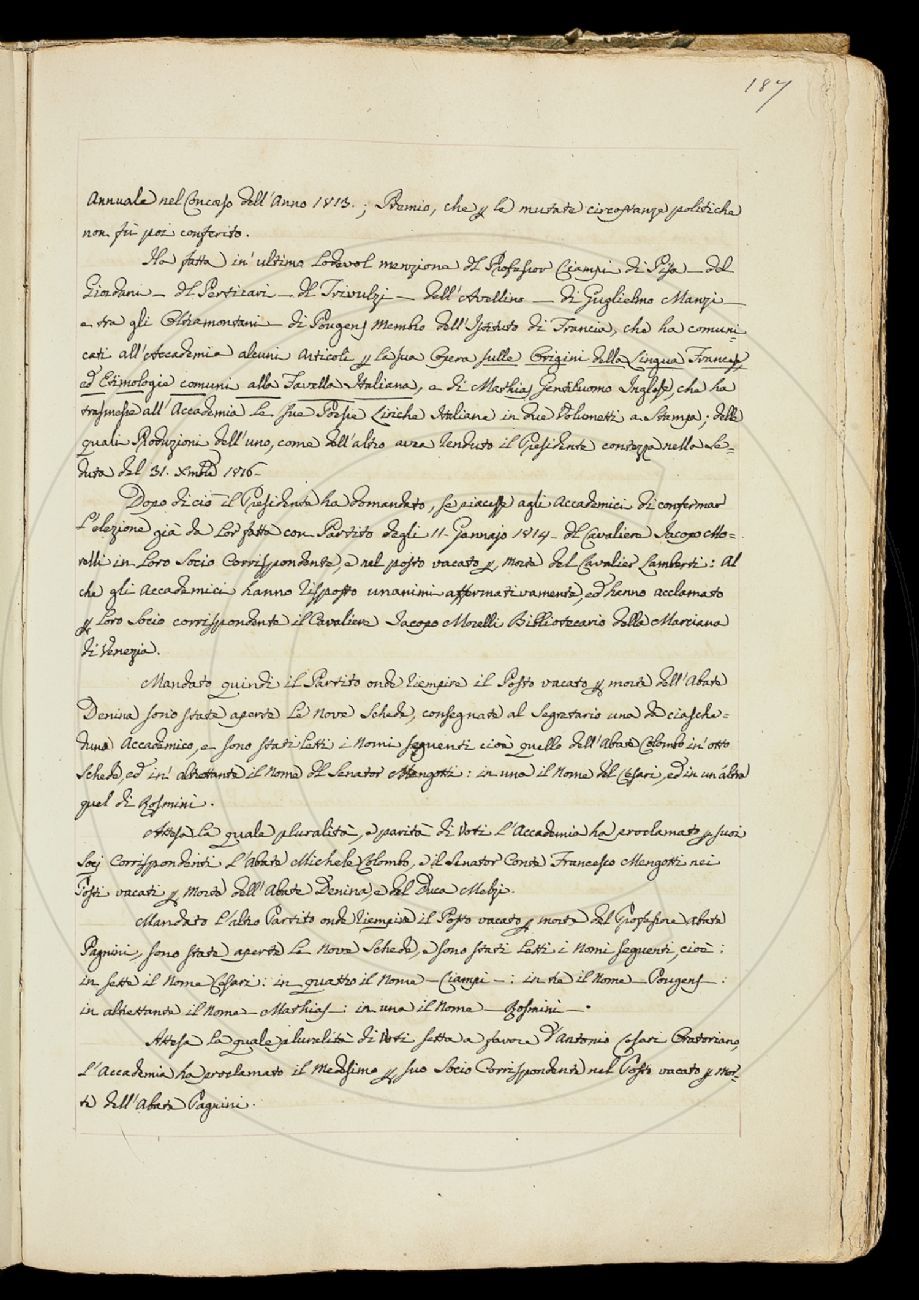 187
Annuale nel Concorso dell'Anno 1813.; Premio, che p le mutate circostanze politiche
non fù poi conferito.
Ha fatta in'ultimo lodevol menzione del Professor Ciampi di Pisa — del
Giordani — del Perticari — del Trivulzj — dell'Avellino — di Guglielmo Manzi —
e tra gli Oltramontani — di Pougens Membro dell'Istituto di Francia, che ha comuni-
cati all'Accademia alcuni Articoli p la sua Opera sulle Origini della Lingua Francese,
ed Etimologie comuni alla Favella Italiana, e di Mathias Gentiluomo Inglese, che ha
trasmesse all'Accademia le sue Poesie Liriche Italiane in due Volumetti a Stampa; delle
quali Produzioni dell'uno, come dell'altro avea renduto il Presidente contezza nella Se-
duta del 31. Xmbre 1816.
Dopo di ciò il Presidente ha domandato, se piacesse agli Accademici di confermar
l'elezione già da lor fatta con Partito degli 11. Gennajo 1814 del Cavaliere Jacopo Mo-
relli in loro Socio Corrispondente, e nel posto vacato p morte del Cavalier Lamberti: Al
che gli Accademici hanno risposto unanimi affermativamente, ed hanno acclamato
p loro Socio corrispondente il Cavaliere Jacopo Morelli Bibliotecario della Marciana
di Venezia.
Mandato quindi il Partito onde riempire il Posto vacato p morte dell'Abate
Denina sono state aperte le nove Schede, consegnate al Segretario una da ciasche-
duno Accademico, e sono stati letti i Nomi seguenti cioè quello dell'Abate Colombo in'otto
Schede, ed in' altrettante il nome del Senator Mengotti: in una il Nome del Cesari, ed in un'altra
quel di Rosmini.
Attesa la quale pluralità, e parità di Voti l'Accademia ha proclamato p suoi
Socj Corrispondenti l'Abate Michele Colombo, e il Senator Conte Francesco Mengotti nei
Posti vacati p morte dell'Abate Denina, e del Duca Melzj.
Mandato l'altro Partito onde riempire il Posto vacato p morte del Professore Abate
Pagnini, sono state aperte le nove Schede, e sono stati letti i Nomi seguenti, cioè:
in sette il Nome Cesari: in quattro il Nome — Ciampi —: in tre il Nome — Pougens —:
in altrettante il Nome — Mathias —: in una il Nome — Rosmini —.
Attesa la quale pluralità di Voti sette a favore d'Antonio Cesari Oratoriano,
l'Accademia ha proclamato il Medesimo p suo Socio Corrispondente nel Posto vacato p mor-
te dell'Abate Pagnini.